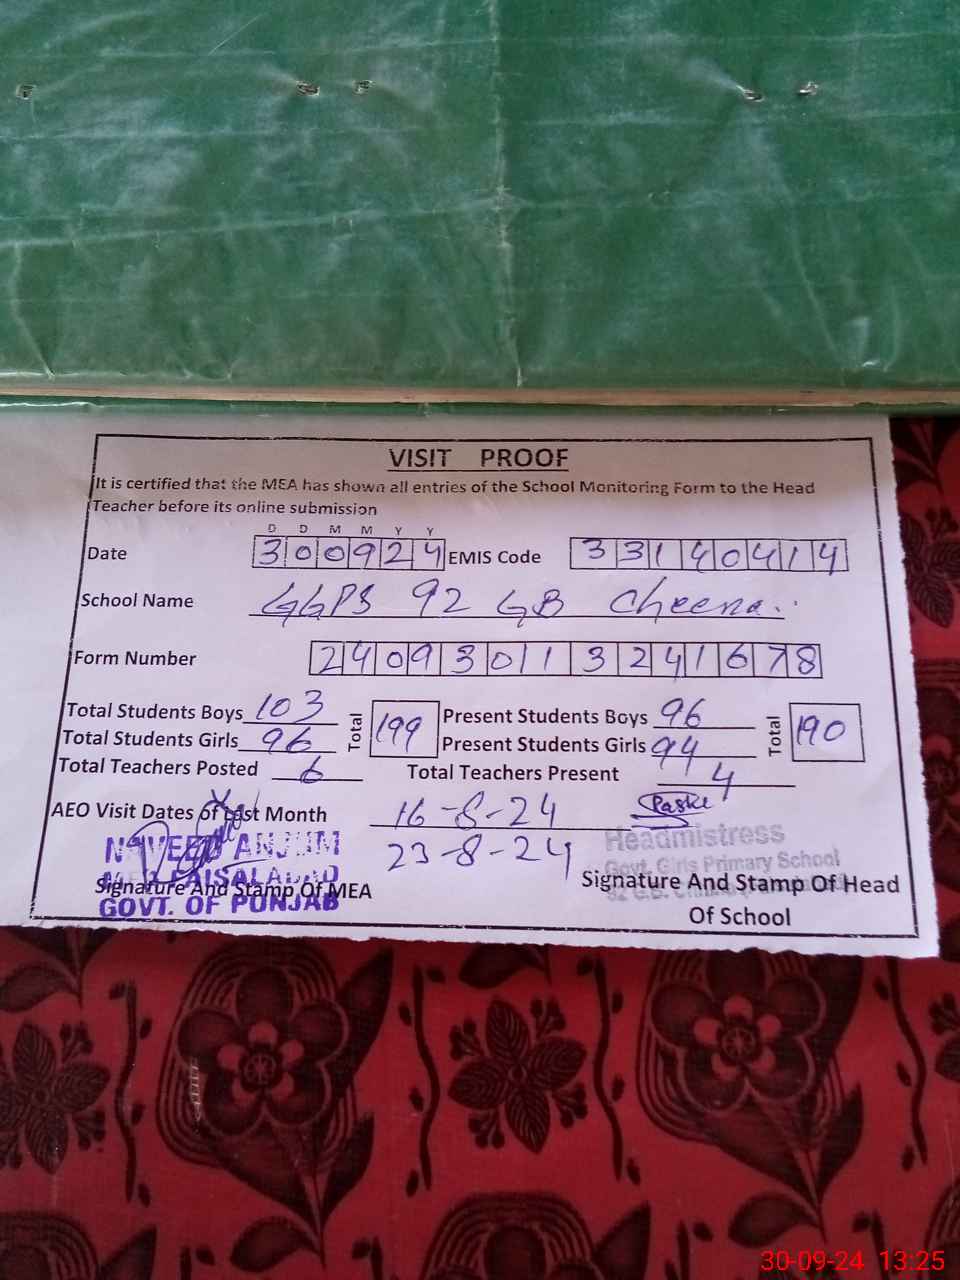 VISIT PROOF
It is certified that the MEA has shown all entries of the School Monitoring Form to the Head
Teacher before its online submission
D D M M Y Y
Date 300924 EMIS Code 33140414
School Name GGPS 92 GB Cheena..
Form Number 24093011324 1678
Total Students Boys 103 Total 199 Present Students Boys 96 Total 190
Total Students Girls 96 Present Students Girls 94
Total Teachers Posted 6 Total Teachers Present 4
AEO Visit Dates of Last Month 16-8-24
23-8-24
NAVEED ANJUM
MEA FAISALABAD
GOVT. OF PUNJAB
Signature And Stamp Of MEA
Headmistress
Govt. Girls Primary School
92 G.B.
Signature And Stamp Of Head
Of School
30-09-24 13:25